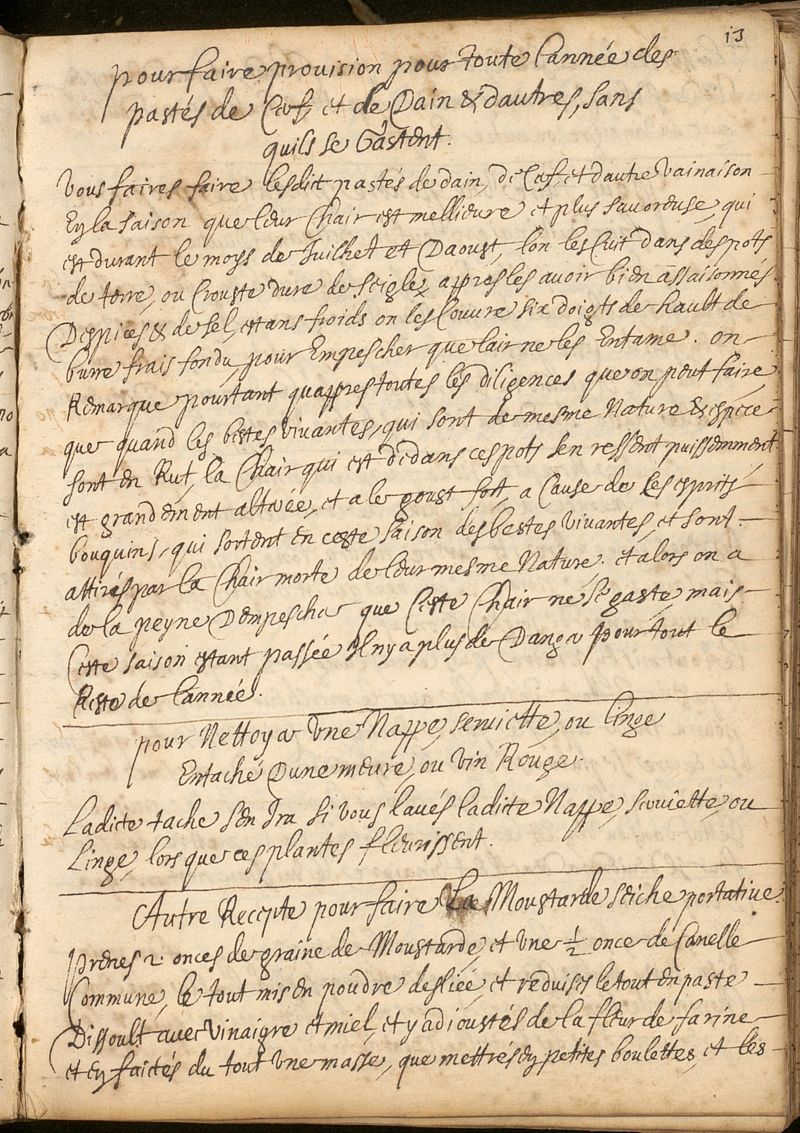 13
pour faire provision pour toute Lannée des
pastés de Cerf et de Dain & dautres, sans
quils se Gastent.
Vous faires faire lesdict pastés de dain, de Cerf, et dautre Vainaison
En la saison que leur Chair est mellieure et plus savoreuse, qui
est durant le moys de Juilhet et Daoust, lon les Cuit dans des pots
de terre, ou Crouste dure de seigle, appres les avoir bien assaisonnés
Despices & de sel, estans froids on les Couvre six doigts de hault de
burre frais fondu, pour Empescher que lair ne les Entame. on
Remarque pourtant quappres toutes les diligences que on peut faire
que quand les bestes vivantes, qui sont de mesme Nature & espece
sont en Rut, la Chair qui est dedans ces pots sen ressent puissemment
est grandement alterée, et a le goust fort, a Cause de les esprits
bouquins, qui sortent en ceste saison des bestes vivantes, et sont
attirés par la Chair morte de leur mesme Nature. et alors on a
de la peyne Dempescher que Ceste Chair ne se gaste, mais
Ceste saison estant passée Il ny a plus de Danger pour tout le
Reste de Lannée.
pour Nettoyer Une Nappe, serviette, ou linge
Entaché Dune meure, ou vin Rouge.
Ladicte tache sen Ira si vous lavés ladicte Nappe, serviette, ou
Linge, lors que ces plantes fleurissent.
Autre Recepte pour faire La Moustarde seiche portative.
Prenes 2. onces de graine de Moustarde, et Une ½ once de Canelle
Commune, le tout mis en poudre desliée, et reduises le tout en paste
Dissoult avec vinaigre et miel, et y adioustés de la fleur de farine
et En faictés du tout Une masse, que mettrés En petites boulettes, et les